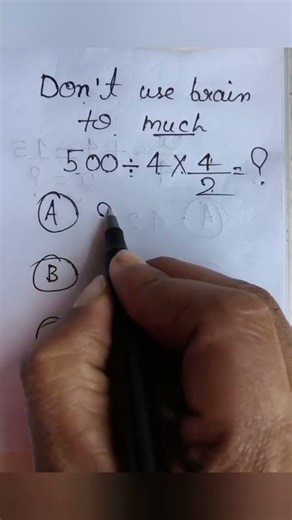 Don't use brain
to much
500÷4×4/2=?
A
B